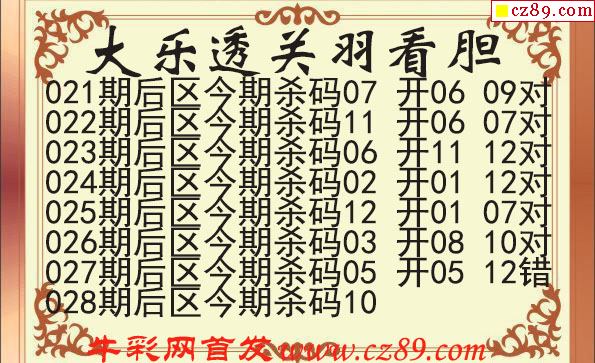 cz89.com
大乐透关羽看胆
021期后区今期杀码07 开06 09对
022期后区今期杀码11 开06 07对
023期后区今期杀码06 开11 12对
024期后区今期杀码02 开01 12对
025期后区今期杀码12 开01 07对
026期后区今期杀码03 开08 10对
027期后区今期杀码05 开05 12错
028期后区今期杀码10
牛彩网首发www.cz89.com